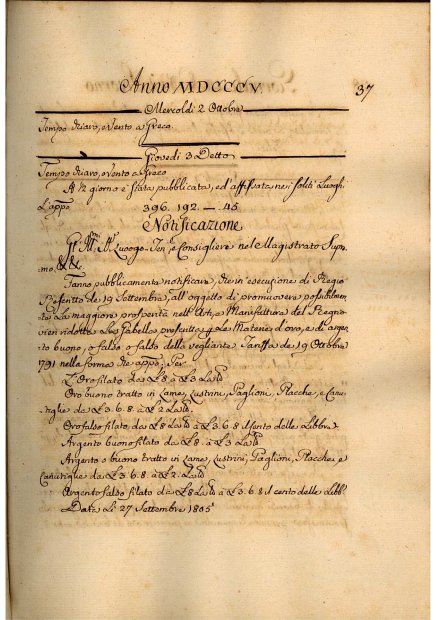 Anno MDCCCV.
37
Mercoldì 2 Ottobre
Tempo chiaro, e Vento a Greco
Giovedì 3 Detto
Tempo chiaro, e Vento a Greco
A ½ giorno è stata pubblicata, ed affissata nei soliti Luoghi
L'appo 396. 192. — 45.
Notificazione
Gl' Ill.mi SS.ri Luogo-Ten.e e Consigliere nel Magistrato Supre-
mo, &. &.
Fanno pubblicamente notificare, che in esecuzione di Regio
Rescritto de 19 Settembre, all'oggetto di promuovere possibilmen-
te La maggiore prosperità nell'Arti, e Manifatture del Regno,
vien ridotta La Gabella prescritta p Le Materie d'oro, e di argen-
to buono, o falso della vegliante Tariffa de 19 Ottobre
1791 nella forma che appo. Per
L'Oro filato da £ 8 a £ 3 La Lb
Oro buono tratto in Lame, Lustrini, Paglioni, Placche, e Canu-
tiglie da £ 3. 6. 8. a £ 2 La Lb
Oro falso filato da £ 8 La Lb a £ 3. 6. 8 il cento delle Libbre.
Argento buono filato da £ 8. a £ 3 La Lb
Argento buono tratto in Lame, Lustrini, Paglioni, Placche, e
Canutiglie da £ 3. 6. 8. a £ 2. La Lb
Argento falso filato da £ 8 La Lb a £ 3. 6. 8 il cento delle Libb.
Dat. Li 27 Settembre 1805